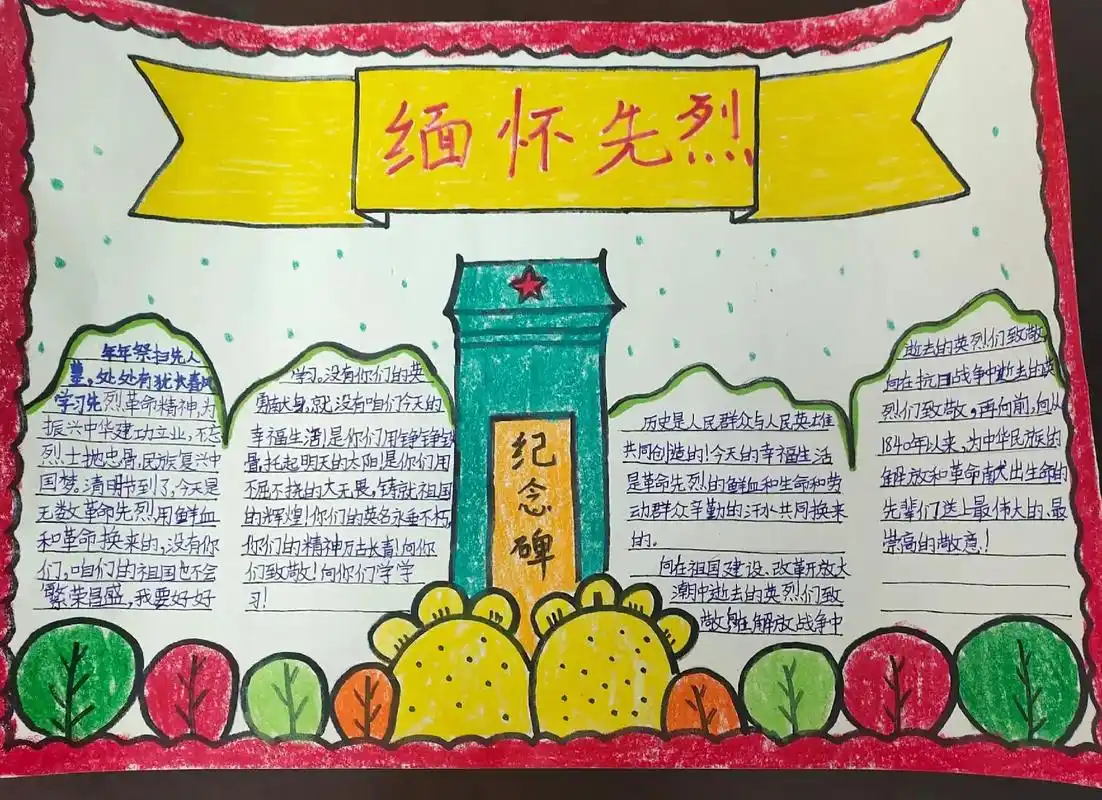 缅怀先烈
纪念碑
年年祭扫先人
墓，处处有犹长春风
学习先烈革命精神，为
振兴中华建功立业，不忘
烈士抛忠骨，民族复兴中
国梦。清明节到了，今天是
无数革命先烈用鲜血
和革命换来的，没有你
们，咱们的祖国也不会
繁荣昌盛，我要好好
学习。没有你们的英
勇献身，就没有咱们今天的
幸福生活！是你们用铮铮
骨，托起明天的太阳！是你们用
不屈不挠的大无畏，铸就祖国
的辉煌！你们的英名永垂不朽，
你们的精神万古长青！向你
们致敬！向你们学学
习！
历史是人民群众与人民英雄
共同创造的！今天的幸福生活
是革命先烈的鲜血和生命和劳
动群众辛勤的汗水共同换来
的。
向在祖国建设、改革开放大
潮中逝去的英烈们致
敬，在解放战争中
逝去的英烈们致敬
向在抗日战争中逝去的英
烈们致敬，再向前，向从
1840年以来，为中华民族的
解放和革命献出生命的
先辈们送上最伟大的、最
崇高的敬意！